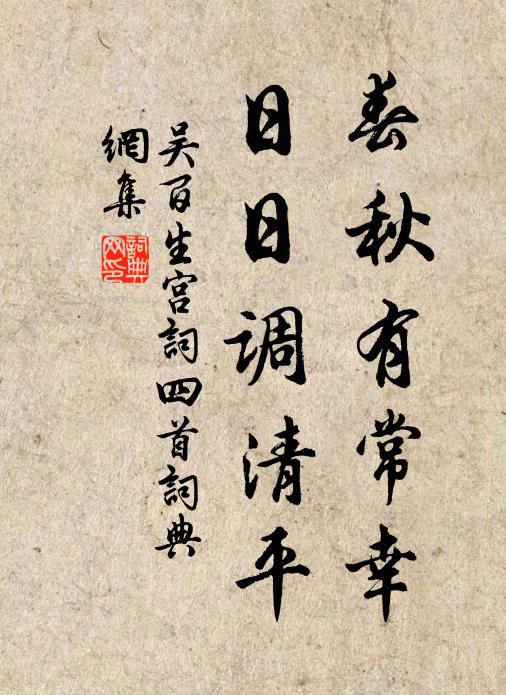 春秋有常幸
日日调清平
吴百生宫词四首词典
網集
詞典网印